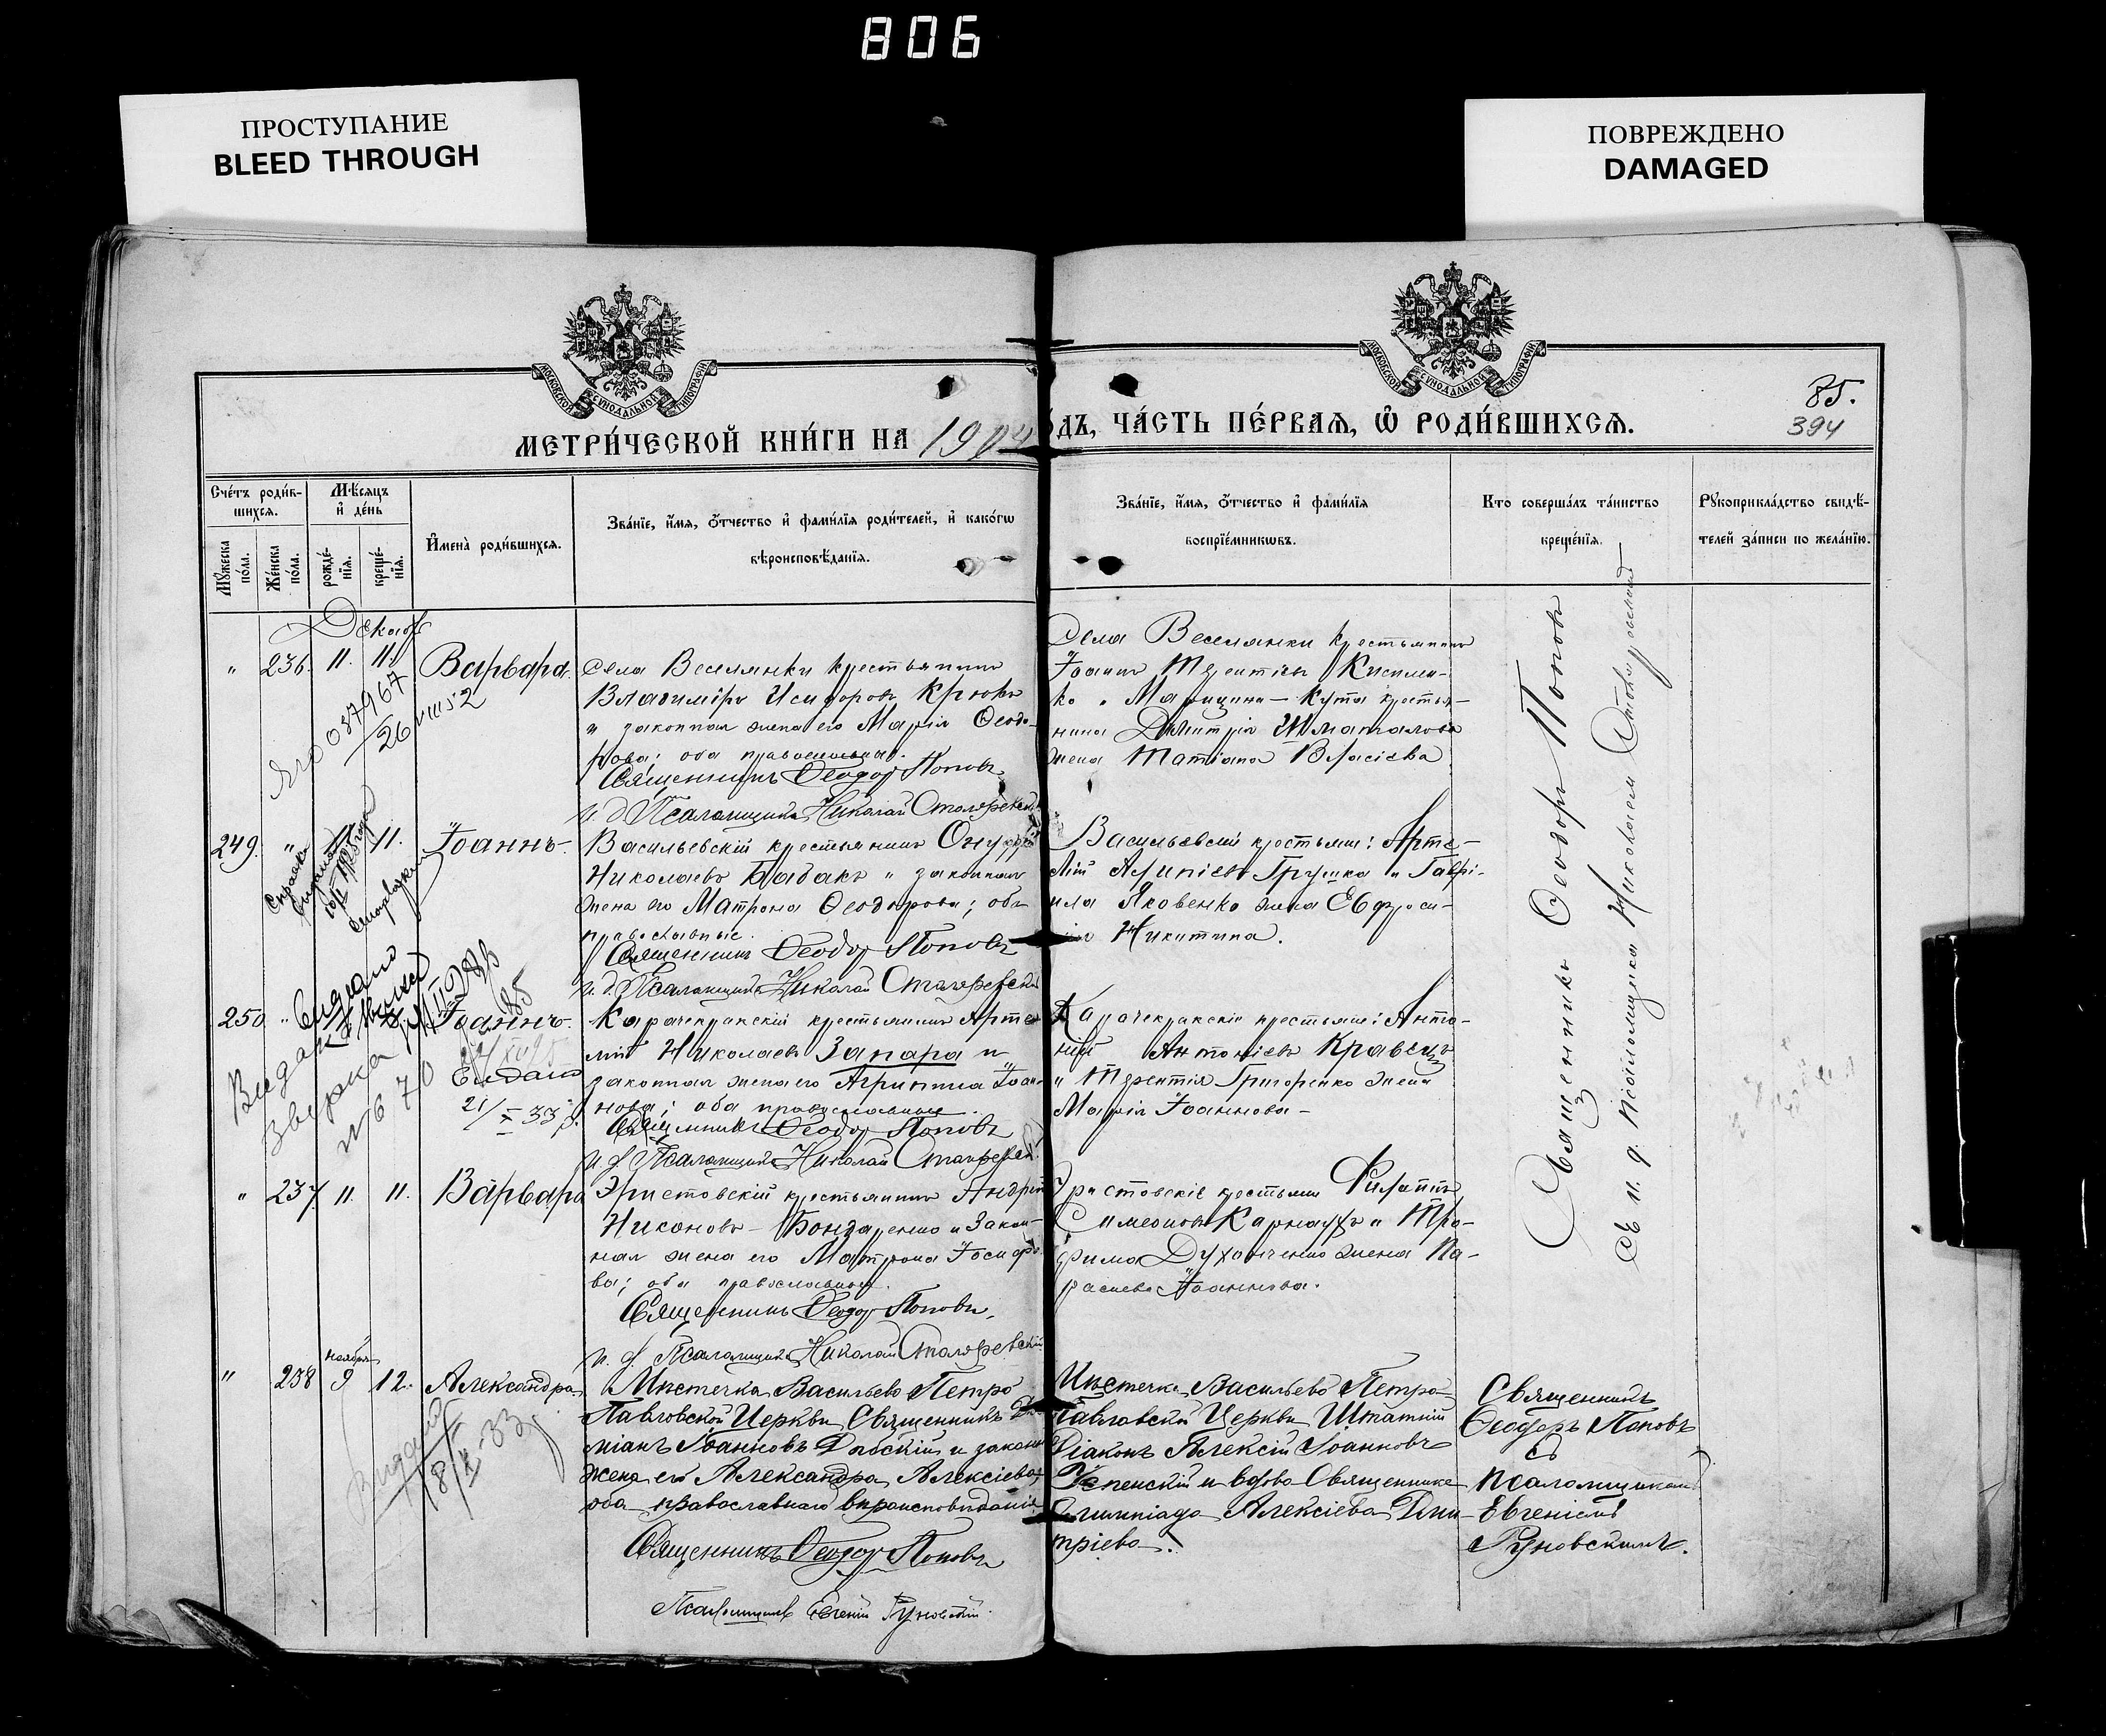 806
ПРОСТУПАНИЕ
BLEED THROUGH
ПОВРЕЖДЕНО
DAMAGED
МОСКОВСКОЙ СУНОДАЛЬНОЙ ТИПОГРАФІИ
МОСКОВСКОЙ СУНОДАЛЬНОЙ ТИПОГРАФІИ
85.
394
МЕТРИ́ЧЕСКОЙ КНИ́ГИ НА 1904
ДЪ, ЧА́СТЬ ПЕ́РВАѦ, Ѡ҆ РОДИ́ВШИХСѦ.
Сче́тъ роди́в-
шихсѧ.
Мꙋ́жеска по́ла.
Же́нска по́ла.
Мѣ́сѧцъ
и҆ де́нь
рожде́-
нїѧ.
креще́-
нїѧ.
И҆мена̀ роди́вшихсѧ.
Зва́нїе, и҆́мѧ, ѻ҆́тчество и҆ фами́лїѧ роди́телей, и҆ како́гѡ
вѣроисповѣ́данїѧ.
Зва́нїе, и҆́мѧ, ѻ҆́тчество и҆ фами́лїѧ
воспрїе́мникѡвъ.
Кто соверша́лъ та́инство
креще́нїѧ.
Рꙋкоприкла́дство свидѣ́-
телей за́писи по жела́нїю.
Декабр
" 236. 11. 11. Варвара.
Села Веселянки крестьянинъ
Владиміръ Исидоровъ Крюкъ
и законная жена его Марія Ѳеодо-
рова; оба православные.
Священникъ Ѳеодоръ Поповъ
и. д. Псаломщика Николай Столяревскій
Села Веселянки крестьянинъ
Іоаннъ Терентіевъ Кисилен-
ко и Марицина-Кута крестья-
нина Димитрія Шматалова
жена Татіана Власіева
037967
26 VIII 52
249. " 11. Іоаннъ.
Васильевскій крестьянинъ Онуфрій
Николаевъ Бабакъ и законная
жена его Матрона Ѳеодорова; оба
православные.
Священникъ Ѳеодоръ Поповъ
и. д. Псаломщика Николай Столяревскій
Васильевскіе крестьяне: Арте-
мій Грушка и Гаврі-
ила Яковенко жена Евфроси-
нія Никитина.
250 " Іоаннъ.
Карачекракскій крестьянинъ Арте-
мій Николаевъ Запара и
законная жена его Агрипина Іоан-
нова; оба православные.
Священникъ Ѳеодоръ Поповъ
и. д. Псаломщика Николай Столяревскій
Карачекракскіе крестьяне: Анто-
ній Антоніевъ Кравецъ
и Терентія Григоренко жена
Марія Іоаннова-
21/X 33 р.
" 237. 11. 11. Варвара
Эристовскій крестьянинъ Андрей
Никоновъ Бондаренко и закон-
ная жена его Матрона Іосифо-
ва; оба православные.
Священникъ Ѳеодоръ Поповъ,
и. д. Псаломщика Николай Столяревскій
Эристовскіе крестьяне Филиппъ
Симеоновъ Карнаухъ и Тро-
фима Духонченко жена Па-
раскева Іоаннова.
Священникъ Ѳеодоръ Поповъ
съ и. д. Псаломщика Николаемъ Столяревскимъ
" 238 ноября 9 12. Александра
Мѣстечка Васильево Петро
Павловской Церкви Священникъ Да-
міанъ Іоанновъ Дольскій и законн.
жена его Александра Алексіева,
оба православнаго вѣроисповѣданія
Священникъ Ѳеодоръ Поповъ
Псаломщикъ Евгеній Руновскій.
Мѣстечка Васильево Петро-
Павловской Церкви Штатный
Діаконъ Алексій Іоанновъ
Успенскій и вдова Священника
Олимпіада Алексіева Дми-
тріева.
Священникъ
Ѳеодоръ Поповъ
съ
псаломщикомъ
Евгеніемъ
Руновскимъ.